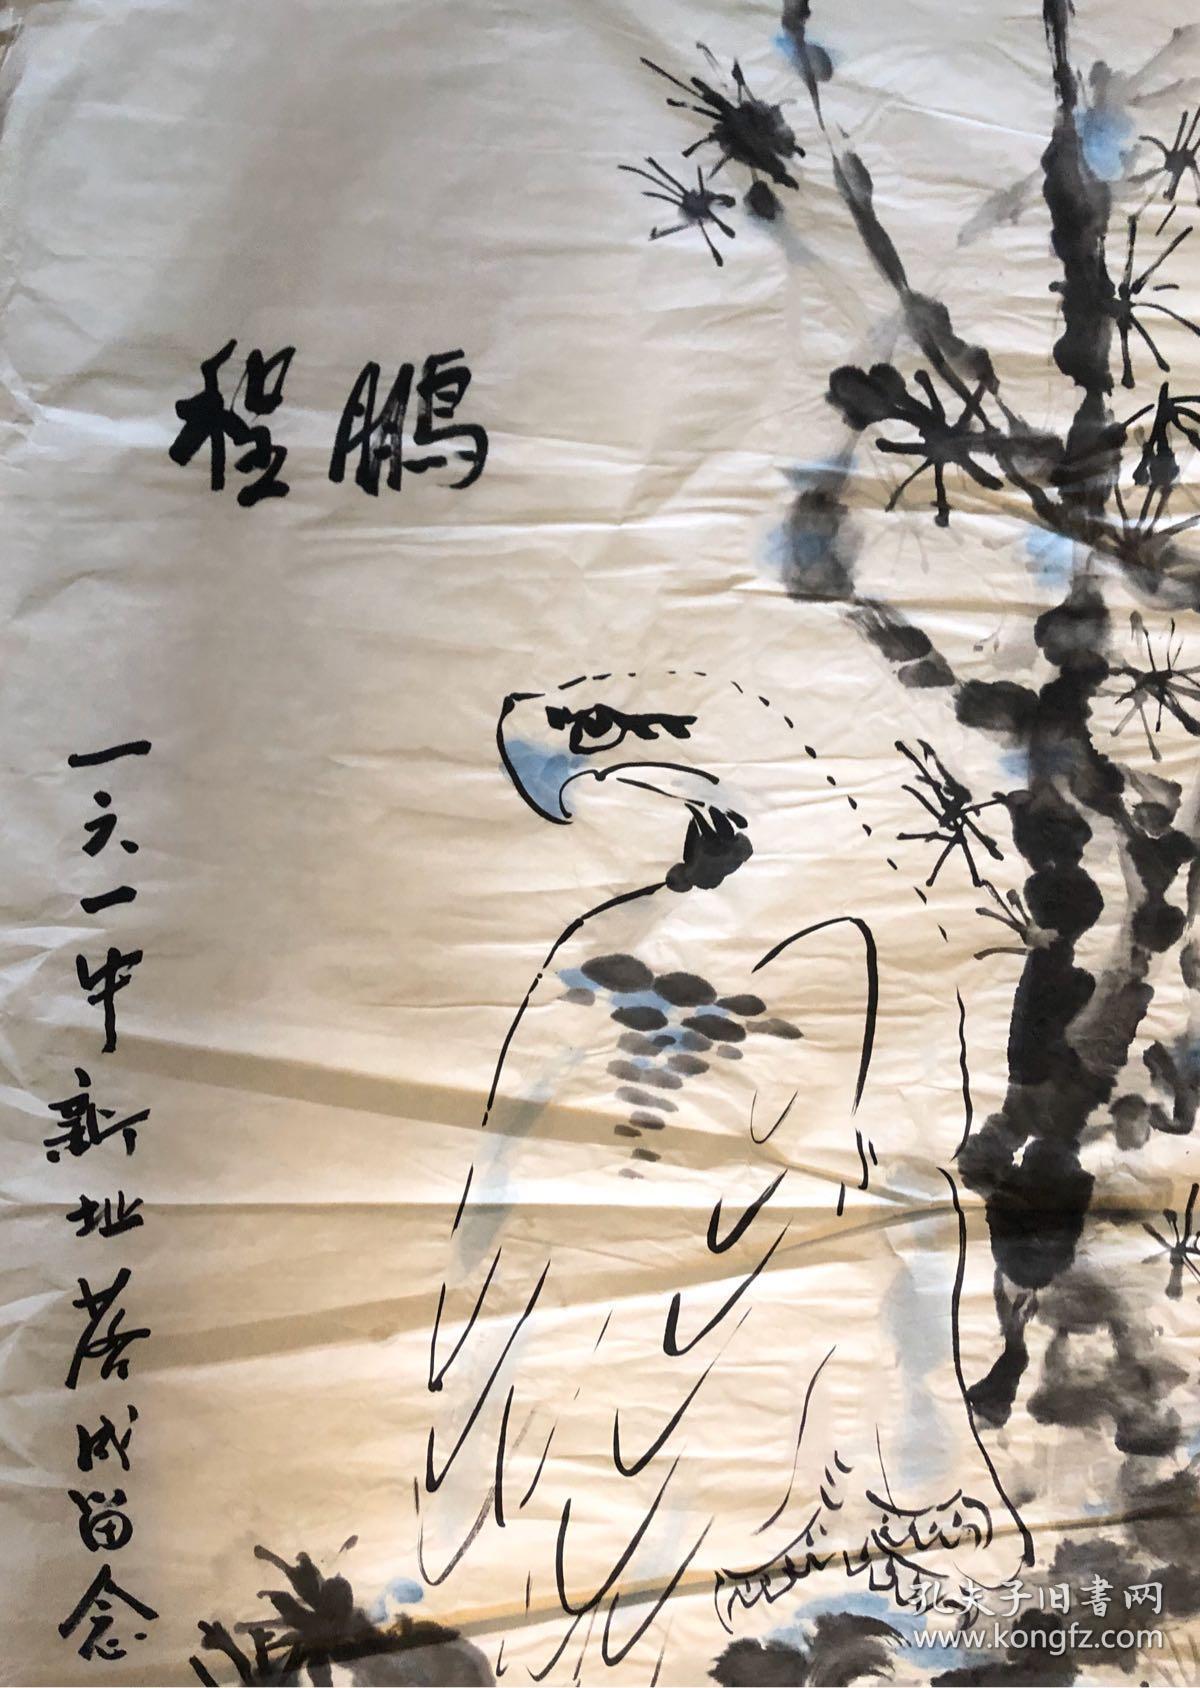 鹏程
一六一中新址落成留念
孔夫子旧書网
www.kongfz.com